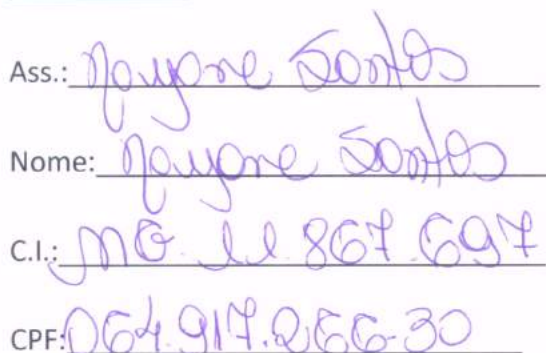 Ass.: Nayane Santos
Nome: Nayane Santos
C.I.: MG. 11.867.697
CPF: 064.917.266-30